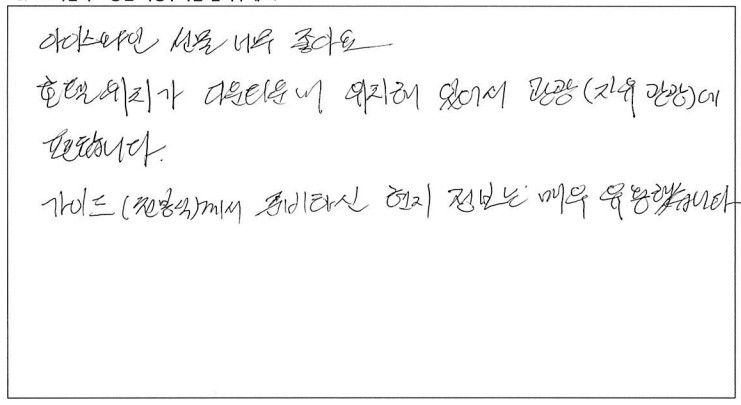 아이스와인 선물 너무 좋아요
호텔 위치가 다운타운 내 위치해 있어서 관광(자유 관광)에
편했습니다.
가이드 께서 현지 정보는 매우 유용했습니다